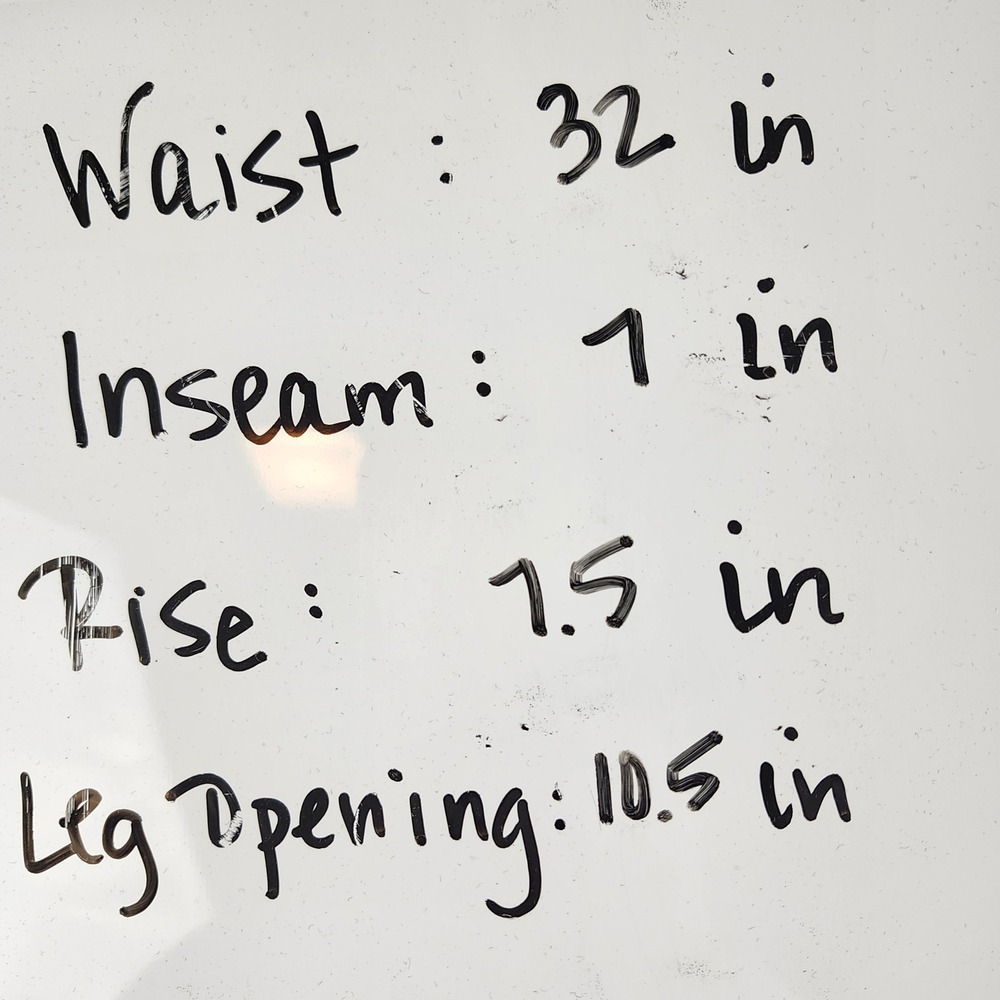 Waist : 32 in
Inseam : 7 in
Rise : 7.5 in
Leg Opening : 10.5 in